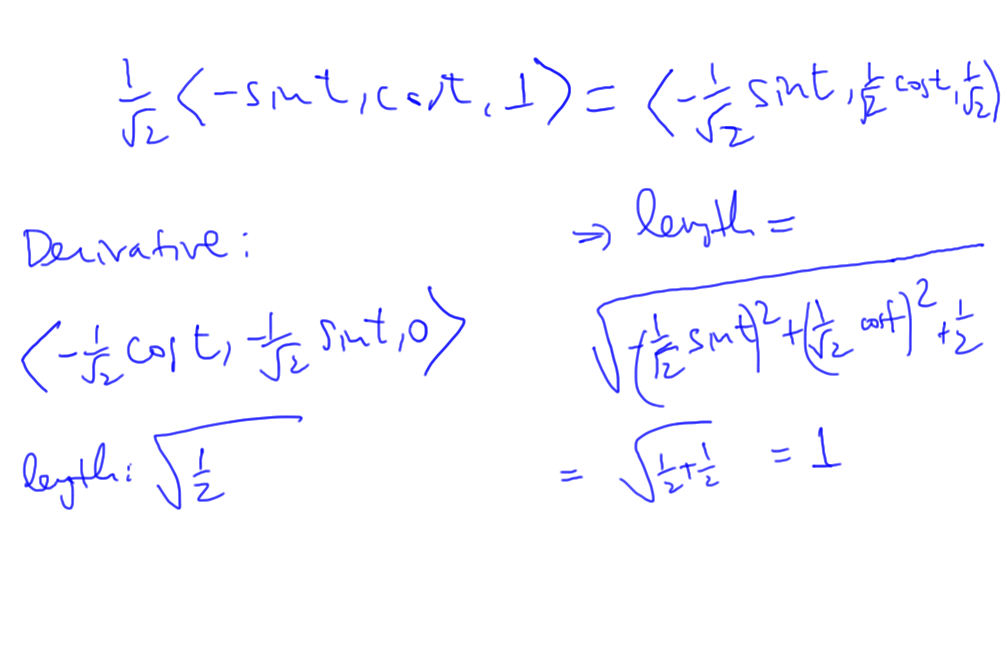 1/√2 ⟨-sint, cost, 1⟩ = ⟨-1/√2 sint, 1/√2 cost, 1/√2⟩
Derivative:
⟨-1/√2 cost, -1/√2 sint, 0⟩
length: √(1/2)
⇒ length =
√((-1/√2 sint)² + (1/√2 cost)² + 1/2)
= √(1/2 + 1/2) = 1